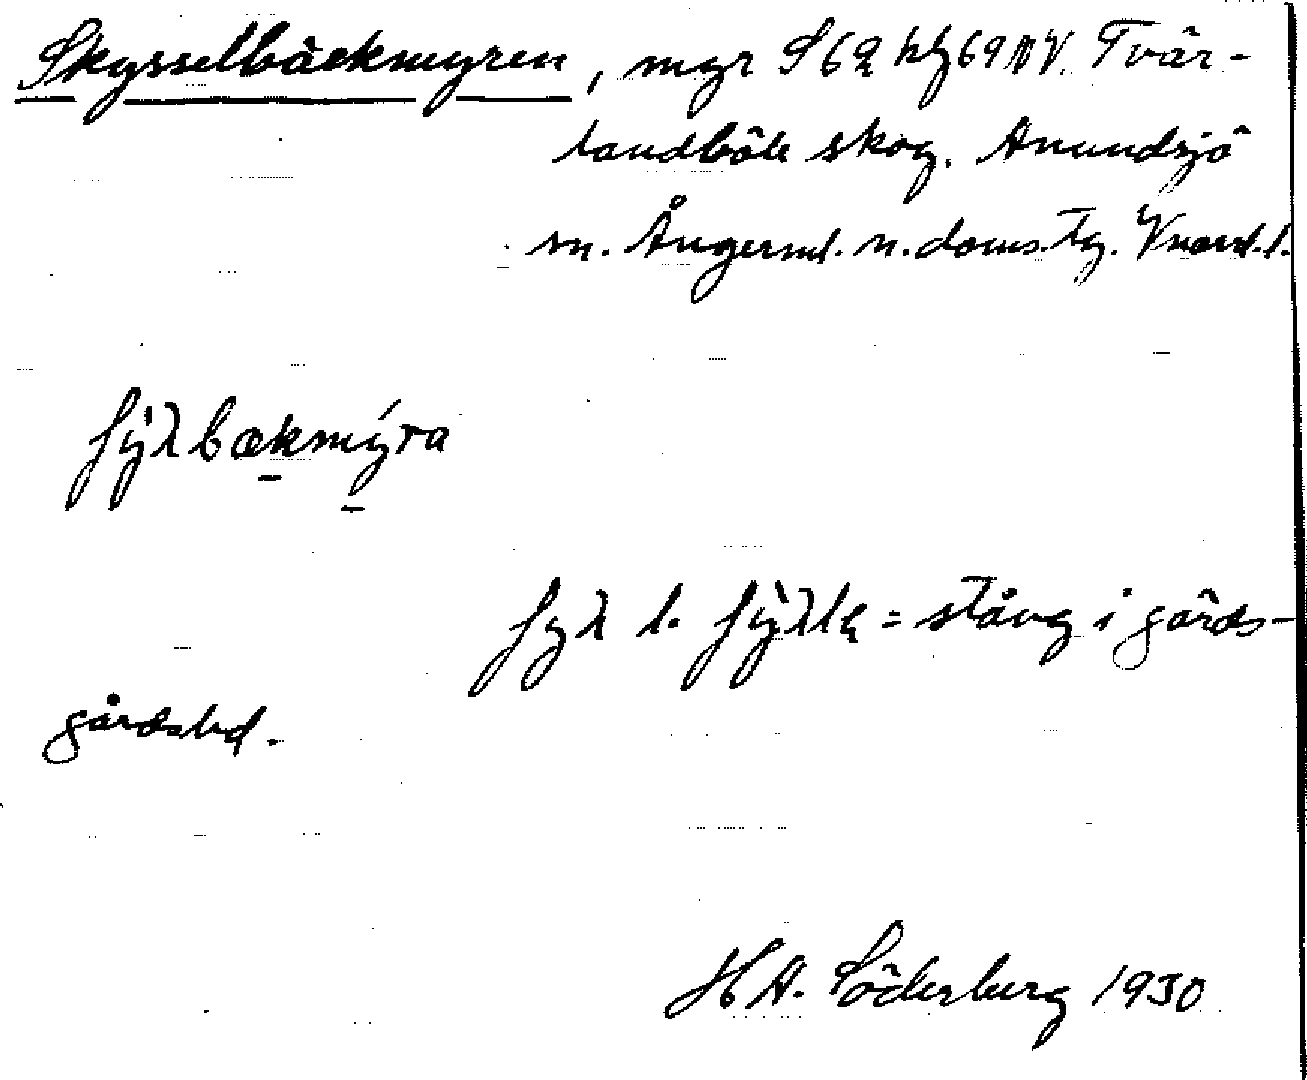 Skysselbäckmyren, myr S 62 hf 69 NV. Tvär-
landböle skog. Anundsjö
sn. Ångerml. n. doms. tg. Vnord. l.
ʃýλbækmýra
ʃyλ l. ʃỳλlę = stång i gärds-
gårdsled.
H A. Söderberg 1930